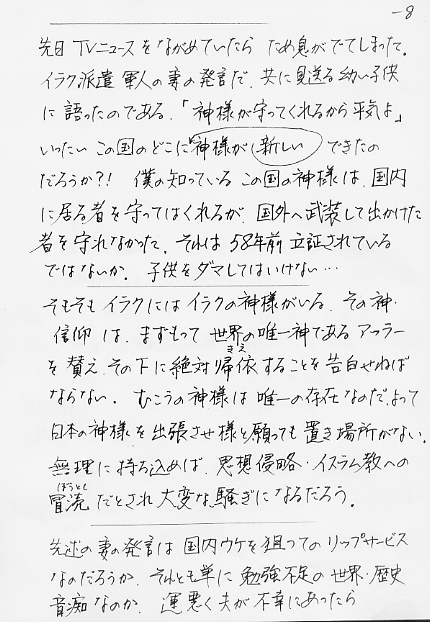 -8
先日 TVニュースをながめていたら ため息がでてしまった。
イラク派遣 軍人の妻の発言だ。共に見送る幼い子供
に語ったのである。「神様が守ってくれるから平気よ」
いったい この国のどこに神様が新しい できたの
だろうか?! 僕の知っている この国の神様は、国内
に居る者を守ってはくれるが、国外へ武装して出かけた
者を守れなかった。それは 58年前 立証されている
ではないか。 子供をダマしてはいけない…
そもそも イラクには イラクの神様がいる。その神・
信仰 は、まずもって 世界の唯一神である アッラー
を 賛え その下に絶対 帰依 することを 告白せねば
きえ
ならない。 むこうの神様は 唯一の存在なのだ、よって
日本の神様を出張させ様と願っても 置き場所がない。
無理に持ち込めば、思想侵略・イスラム教への
ぼうとく
冒涜 だとされ 大変な騒ぎになるだろう。
先述の妻の発言は 国内ウケを狙ってのリップサービス
なのだろうか、それとも単に 勉強不足の 世界・歴史
音痴なのか、 運悪く 夫が 不幸にあったら